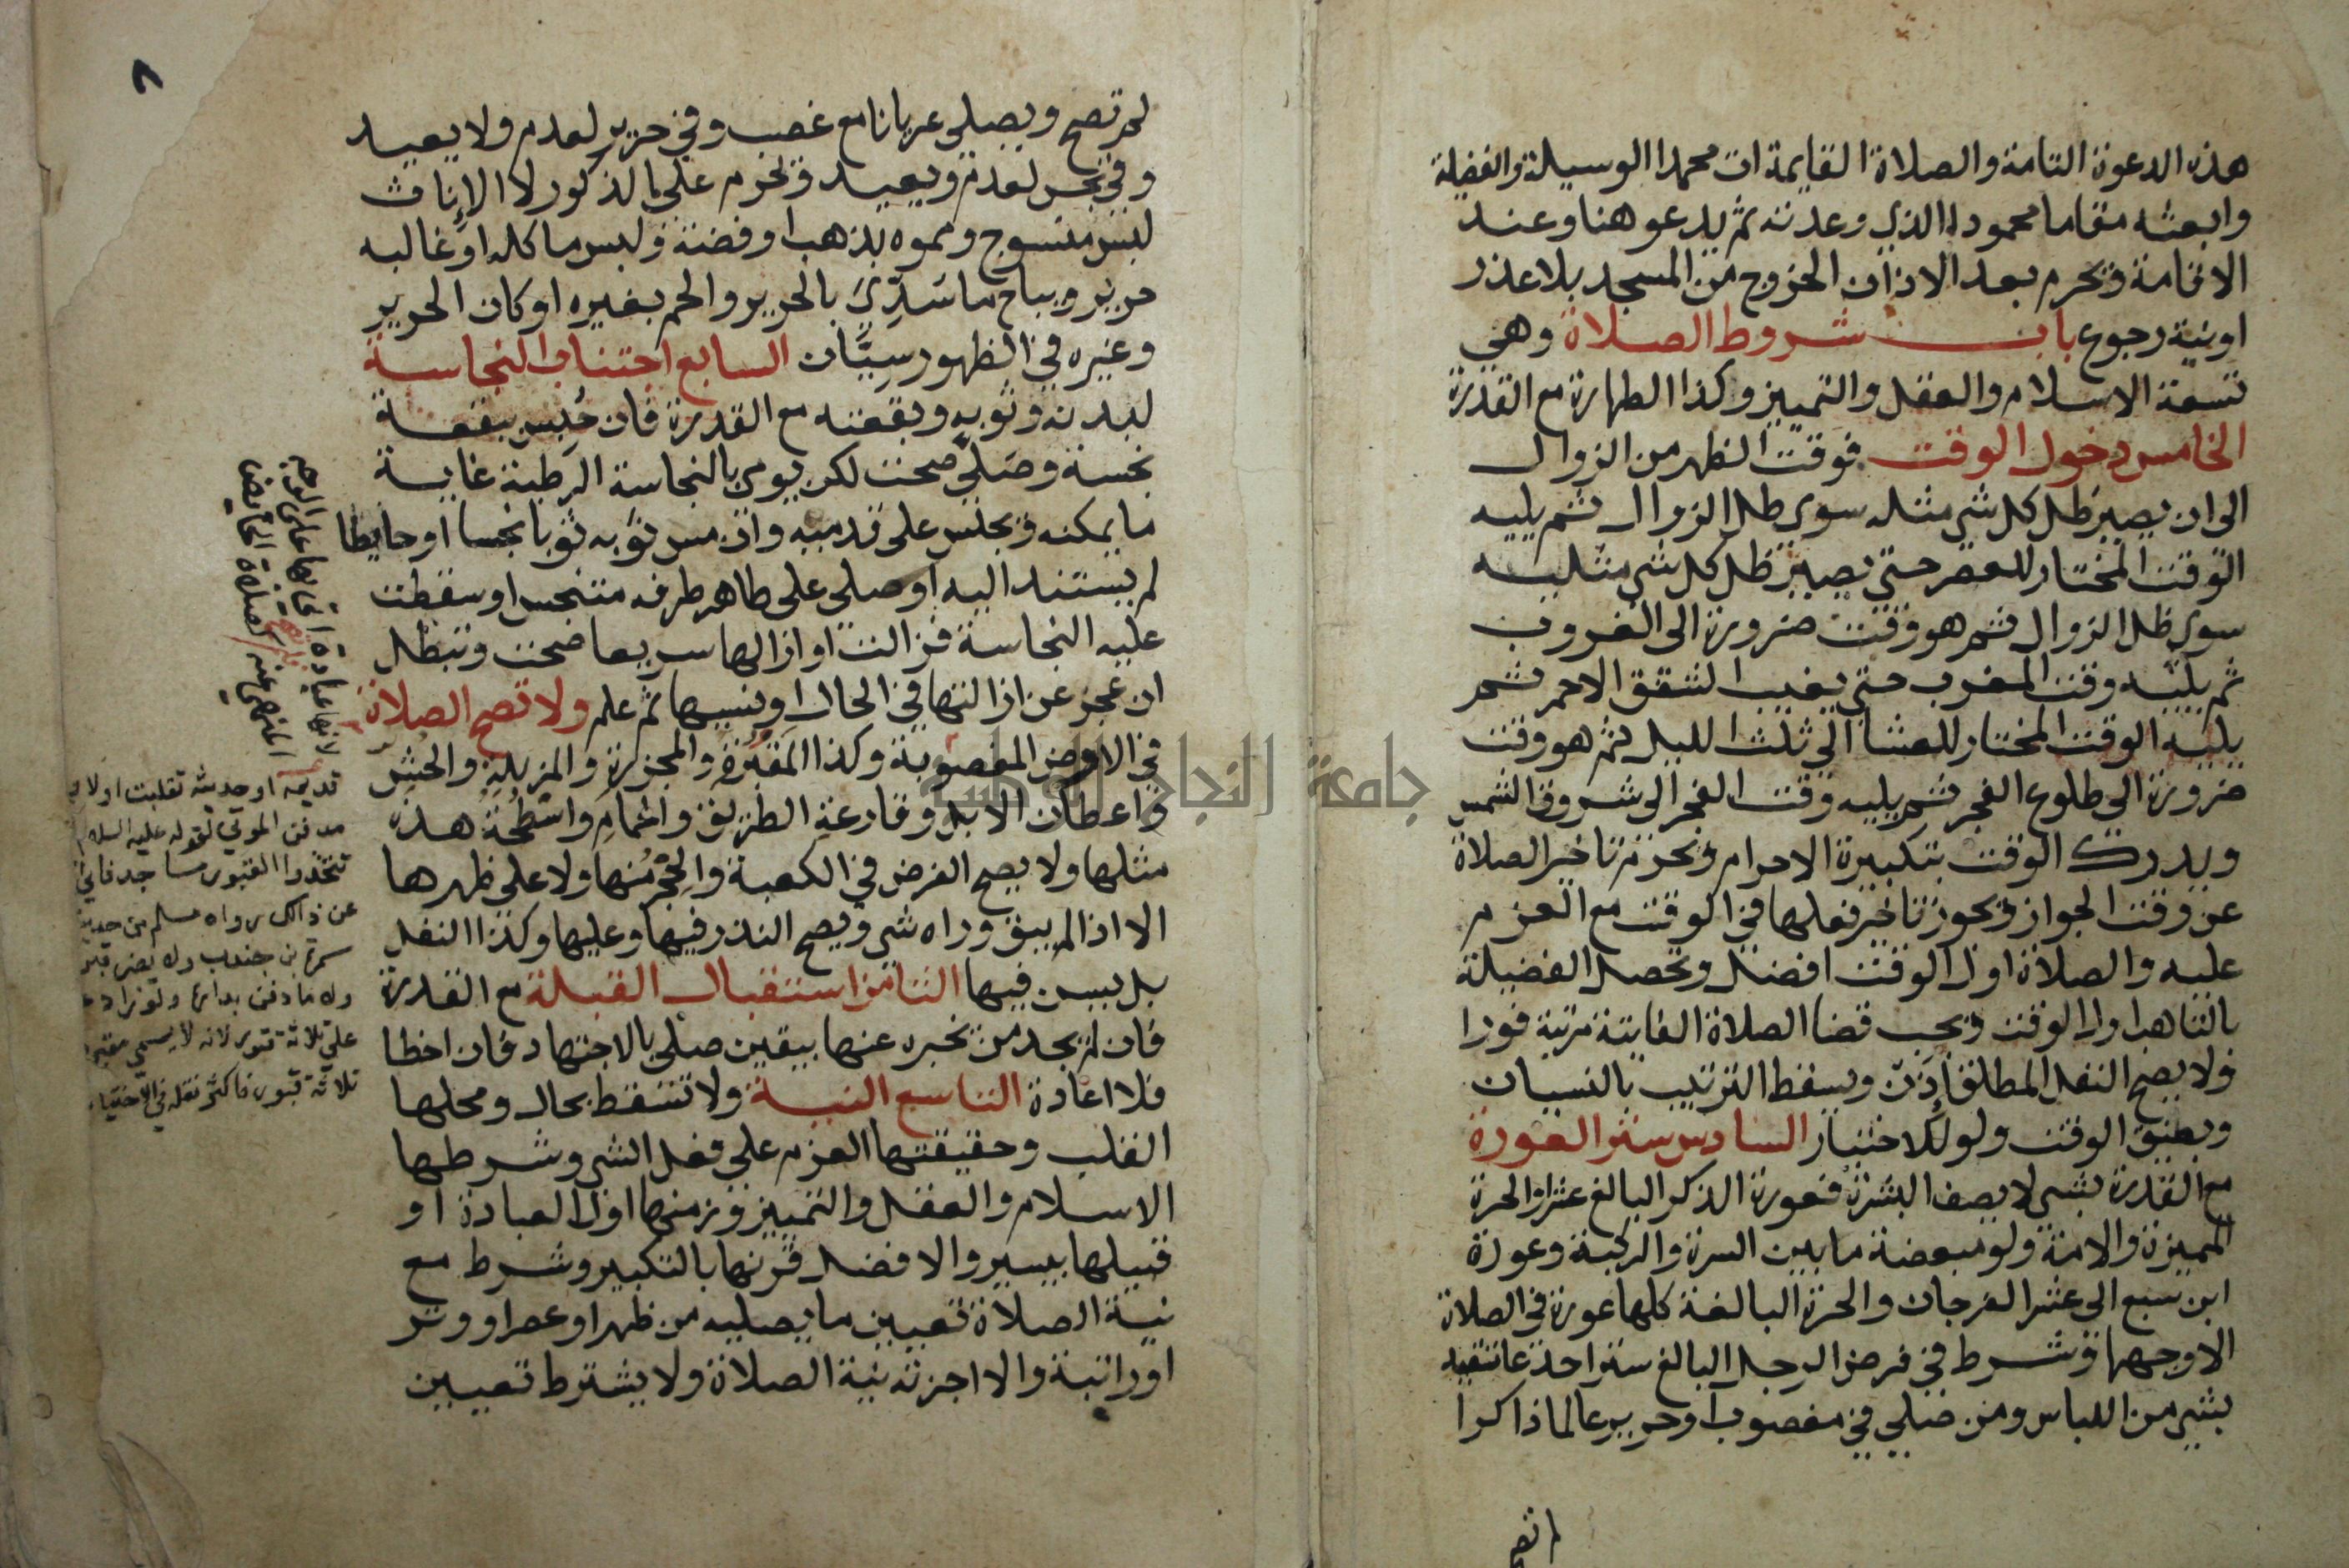 هذه الدعوة التامة والصلاة القايمة ات محمدا الوسيلة والفضيلة
وابعثه مقاما محمودا الذي وعدته ثم يدعو هنا وعند
الاقامة ويحرم بعد الاذان الخروج من المسجد بلا عذر
او نية رجوع باب شروط الصلاة وهي
تسعة الاسلام والعقل والتمييز وكذا الطهارة مع القدرة
الخامس دخول الوقت فوقت الظهر من الزوال
الى ان يصير ظل كل شي مثله سوى ظل الزوال ثم يليه
الوقت المختار للعصر حتى يصير ظل كل شي مثليه
سوى ظل الزوال ثم هو وقت ضرورة الى الغروب
ثم يليه وقت المغرب حتى يغيب الشفق الاحمر ثم
يليه الوقت المختار للعشا الى ثلث الليل ثم هو وقت
ضرورة الى طلوع الفجر ثم يليه وقت الفجر الى شروق الشمس
ويدرك الوقت بتكبيرة الاحرام ويحرم تاخير الصلاة
عن وقت الجواز ويجوز تاخير فعلها في الوقت مع العزم
عليه والصلاة اول الوقت افضل وتحصل الفضيلة
بالتاهب اول الوقت ويجب قضا الصلاة الفايتة مرتبة فورا
ولا يصح النفل المطلق إذن ويسقط الترتيب بالنسيان
وبضيق الوقت ولو للاختيار السادس ستر العورة
مع القدرة بشي لا يصف البشرة فعورة الذكر البالغ عشرا والحرة
المميزة والامة ولو مبعضة ما بين السرة والركبة وعورة
ابن سبع الى عشر الفرجان والحرة البالغة كلها عورة في الصلاة
الا وجهها وشرط في فرض الرجل البالغ ستر احد عاتقيه
بشي من اللباس ومن صلى في مغصوب او حرير عالما ذاكرا
لم تصح
٨
لم تصح ويصلي عريانا مع غصب وفي حرير لعدم ولا يعيد
وفي نجس لعدم ويعيد ويحرم على الذكور لا الإناث
لبس منسوج ومموه بذهب او فضة ولبس ما كله او غالبه
حرير ويباح ما سُدِّيَ بالحرير والحم بغيره او كان الحرير
وغيره في الظهور سِيَّان السابع اجتناب النجاسة
لبدنه وثوبه وبقعته مع القدرة فان حُبِس ببقعة
نجسة وصلى صحت لكن يومي بالنجاسة الرطبة غاية
ما يمكنه ويجلس على قدميه وان مس ثوبه ثوبا نجسا او حايطا
لم يستند اليه او صلى على طاهر طرفه متنجس او سقطت
عليه النجاسة فزالت او ازالها سريعا صحت وتبطل
ان عجز عن ازالتها في الحال او نسيها ثم علم ولا تصح الصلاة
في الارض المغصوبة وكذا المقبرة والمجزرة والمزبلة والحش
واعطان الابل وقارعة الطريق والحمام واسطحة هذه
مثلها ولا يصح الفرض في الكعبة والحجر منها ولا على ظهرها
الا اذا لم يبق وراه شي ويصح النذر فيها وعليها وكذا النفل
بل يسن فيها الثامن استقبال القبلة مع القدرة
فان لم يجد من يخبره عنها بيقين صلى بالاجتهاد فان اخطا
فلا اعادة التاسع النية ولا تسقط بحال ومحلها
القلب وحقيقتها العزم على فعل الشي وشرطها
الاسلام والعقل والتمييز وزمنها اول العبادة او
قبيلها بيسير والافضل قرنها بالتكبير وشرط مع
نية الصلاة تعيين ما يصليه من ظهر او عصر او وتر
او راتبة والا اجزته نية الصلاة ولا يشترط تعيين
لانها عبادة اتى بها على الوجه
المنهي عنه كصلاة الحايض
قديمه او حديثه تقلبت اولا
مدفن الموتى لقوله عليه السلام
تتخذوا القبور مساجد فاني
عن ذالك رواه مسلم من حديث
سمرة بن جندب ولا يضر قبر
ولا ما دفن بداره ولو زاد
على ثلاثة قبور لانه لا يسمى مقبرة
ثلاثة قبور فاكثر نقله في الاختيارات
جامعة النجاح الوطنية